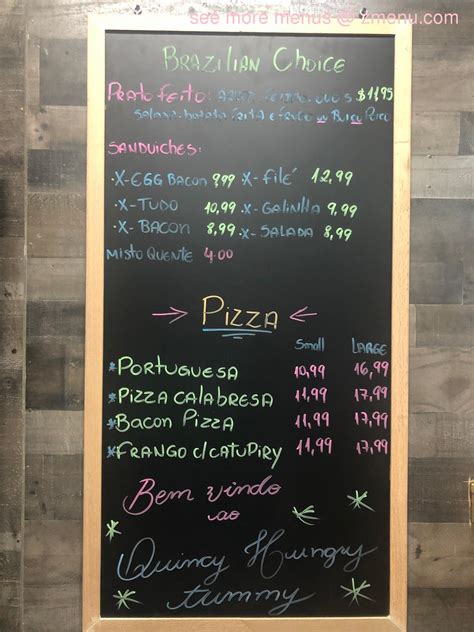 see more menus @ zmenu.com
BRAZILIAN CHOICE
PRATO FEITO: $11.95
SALADA, batata frita e frango ou
SANDUICHES:
·X-EGG BACON 9,99 ·X-filé 12,99
·X-TUDO 10,99 ·X-GALINHA 9,99
·X-BACON 8,99 ·X-SALADA 8,99
MISTO QUENTE 4.00
→ PIZZA ←
Small LARGE
*PORTUGUESA 10,99 16,99
*PIZZA CALABRESA 11,99 17,99
*BACON PIZZA 11,99 17,99
*FRANGO C/CATUPIRY 11,99 17,99
Bem vindo
ao
Quincy Hungry
tummy